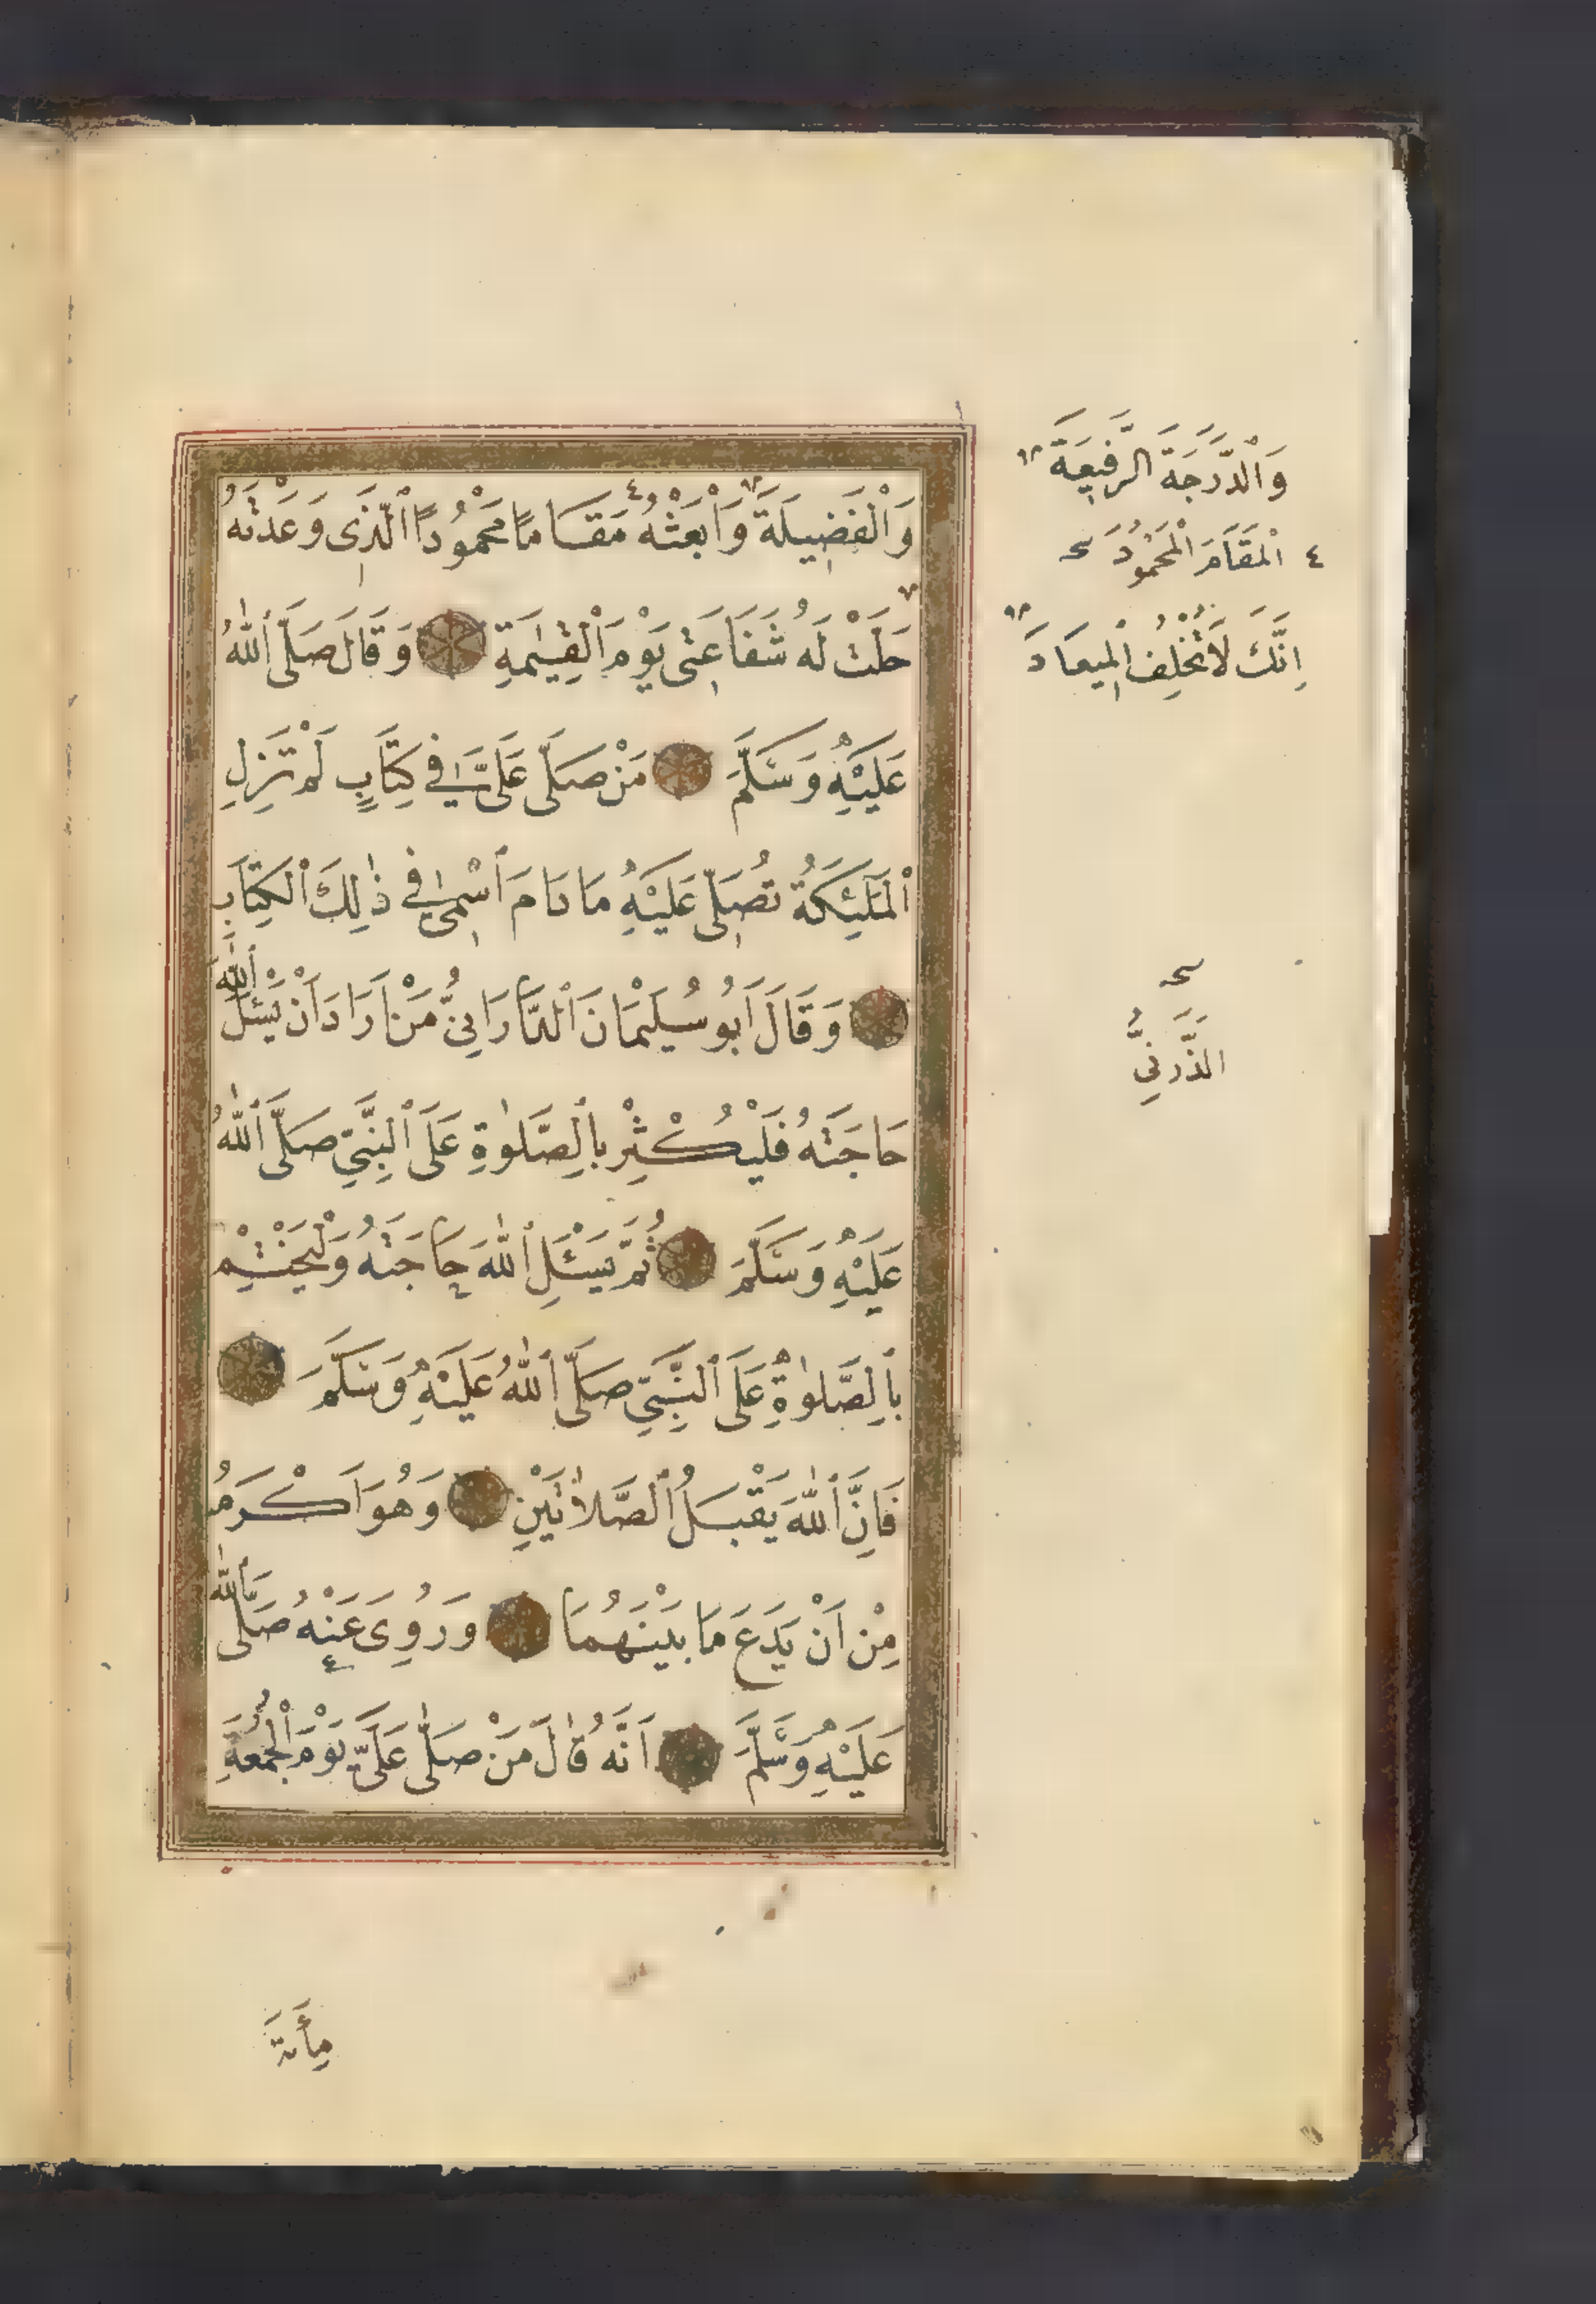 وَالْفَضِيلَةَ وَابْعَثْهُ مَقَامًا مَحْمُودًا الَّذِى وَعَدْتَهُ
حَلَّتْ لَهُ شَفَاعَتِى يَوْمَ الْقِيٰمَةِ وَقَالَ صَلَّى اللّٰهُ
عَلَيْهِ وَسَلَّمَ مَنْ صَلَّى عَلَىَّ فِى كِتَابٍ لَمْ تَزَلِ
الْمَلٰئِكَةُ تُصَلِّى عَلَيْهِ مَا دَامَ اسْمِى فِى ذٰلِكَ الْكِتَابِ
وَقَالَ اَبُو سُلَيْمَانَ الدَّارَانِىُّ مَنْ اَرَادَ اَنْ يَسْئَلَ اللّٰهَ
حَاجَتَهُ فَلْيُكْثِرْ بِالصَّلٰوةِ عَلَى النَّبِىِّ صَلَّى اللّٰهُ
عَلَيْهِ وَسَلَّمَ ثُمَّ يَسْئَلِ اللّٰهَ حَاجَتَهُ وَلْيَخْتِمْ
بِالصَّلٰوةِ عَلَى النَّبِىِّ صَلَّى اللّٰهُ عَلَيْهِ وَسَلَّمَ
فَاِنَّ اللّٰهَ يَقْبَلُ الصَّلَاتَيْنِ وَهُوَ اَكْرَمُ
مِنْ اَنْ يَدَعَ مَا بَيْنَهُمَا وَرُوِىَ عَنْهُ صَلَّى اللّٰهُ
عَلَيْهِ وَسَلَّمَ اَنَّهُ قَالَ مَنْ صَلَّى عَلَىَّ يَوْمَ الْجُمُعَةِ
وَالدَّرَجَةَ الرَّفِيعَةَ
٤ الْمَقَامَ الْمَحْمُودَ
اِنَّكَ لَا تُخْلِفُ الْمِيعَادَ
الدَّرَنِىُّ
مِأَةَ